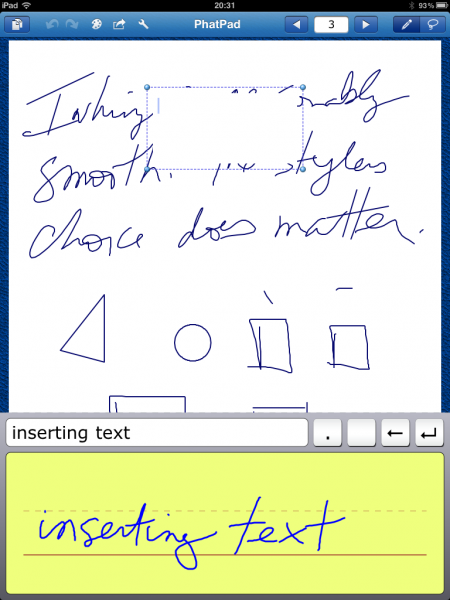 iPad 20:31 93%
PhatPad 3
Inking
smooth. stylus
choice does matter.
inserting text .
inserting text